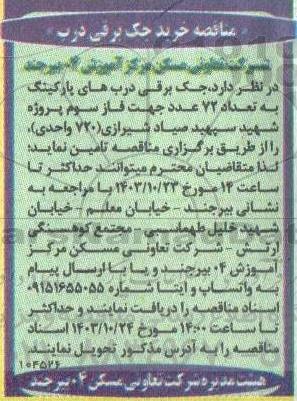 مناقصه خرید جک برقی درب
شرکت تعاونی مسکن مرکز آموزش ۰۴ بیرجند
در نظر دارد،جک برقی درب های پارکینگ
به تعداد ۷۲ عدد جهت فاز سوم پروژه
شهید سپهبد صیاد شیرازی(۷۲۰ واحدی)،
را از طریق برگزاری مناقصه تامین نماید؛
لذا متقاضیان محترم میتوانند حداکثر تا
ساعت ۱۴ مورخ ۱۴۰۳/۱۰/۲۳ با مراجعه به
نشانی بیرجند - خیابان معلم - خیابان
شهید خلیل طهماسبی - مجتمع کوهسنگی
ارتش - شرکت تعاونی مسکن مرکز
آموزش ۰۴ بیرجند و یا با ارسال پیام
به واتساپ و ایتا شماره ۰۹۱۵۱۶۵۵۰۵۵
اسناد مناقصه را دریافت نمایند و حداکثر
تا ساعت ۱۴:۰۰ مورخ ۱۴۰۳/۱۰/۲۴ اسناد
مناقصه را به آدرس مذکور تحویل نمایند.
۱۰۴۵۲۶
هیئت مدیره شرکت تعاونی مسکن ۰۴ بیرجند